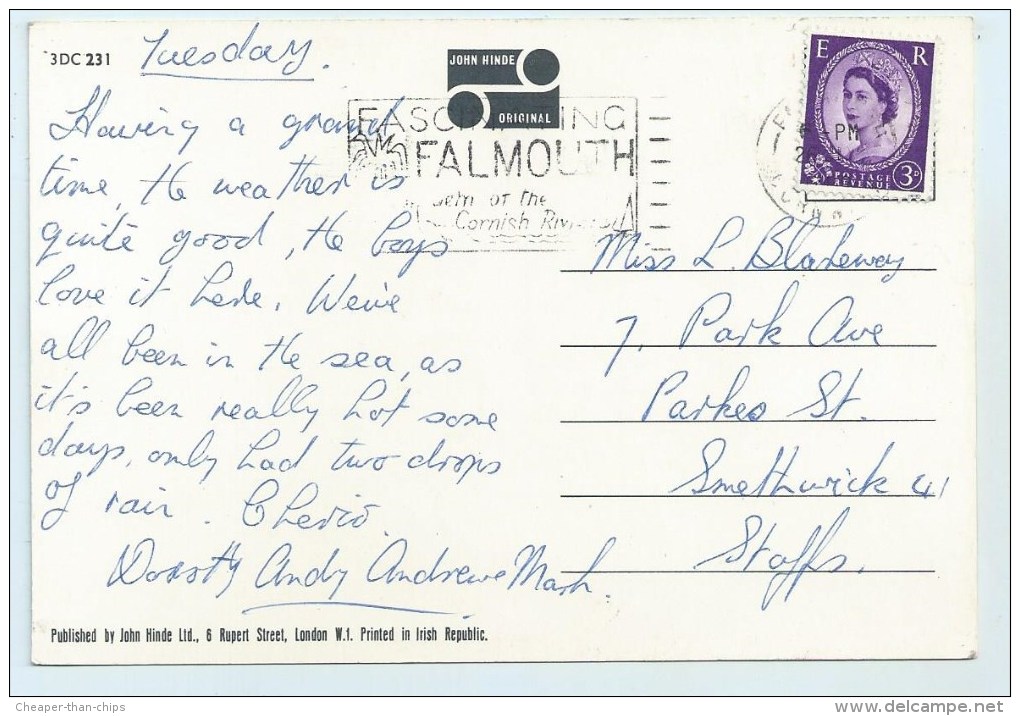 3DC 231
Tuesday.
JOHN HINDE
ORIGINAL
FASCINATING
FALMOUTH
Gem of the
Cornish Riviera
E R
PM
POSTAGE
REVENUE
3D
Having a grand
time, the weather is
quite good, the boys
love it here. We've
all been in the sea, as
it's been really hot some
days, only had two drops
of rain. Cherio.
Andy Andrew Mark.
Miss L. Blakeway
7, Park Ave
Parkes St.
Smethwick 41
Staffs.
Published by John Hinde Ltd., 6 Rupert Street, London W.1. Printed in Irish Republic.
Cheaper-than-chips
www.delcampe.net